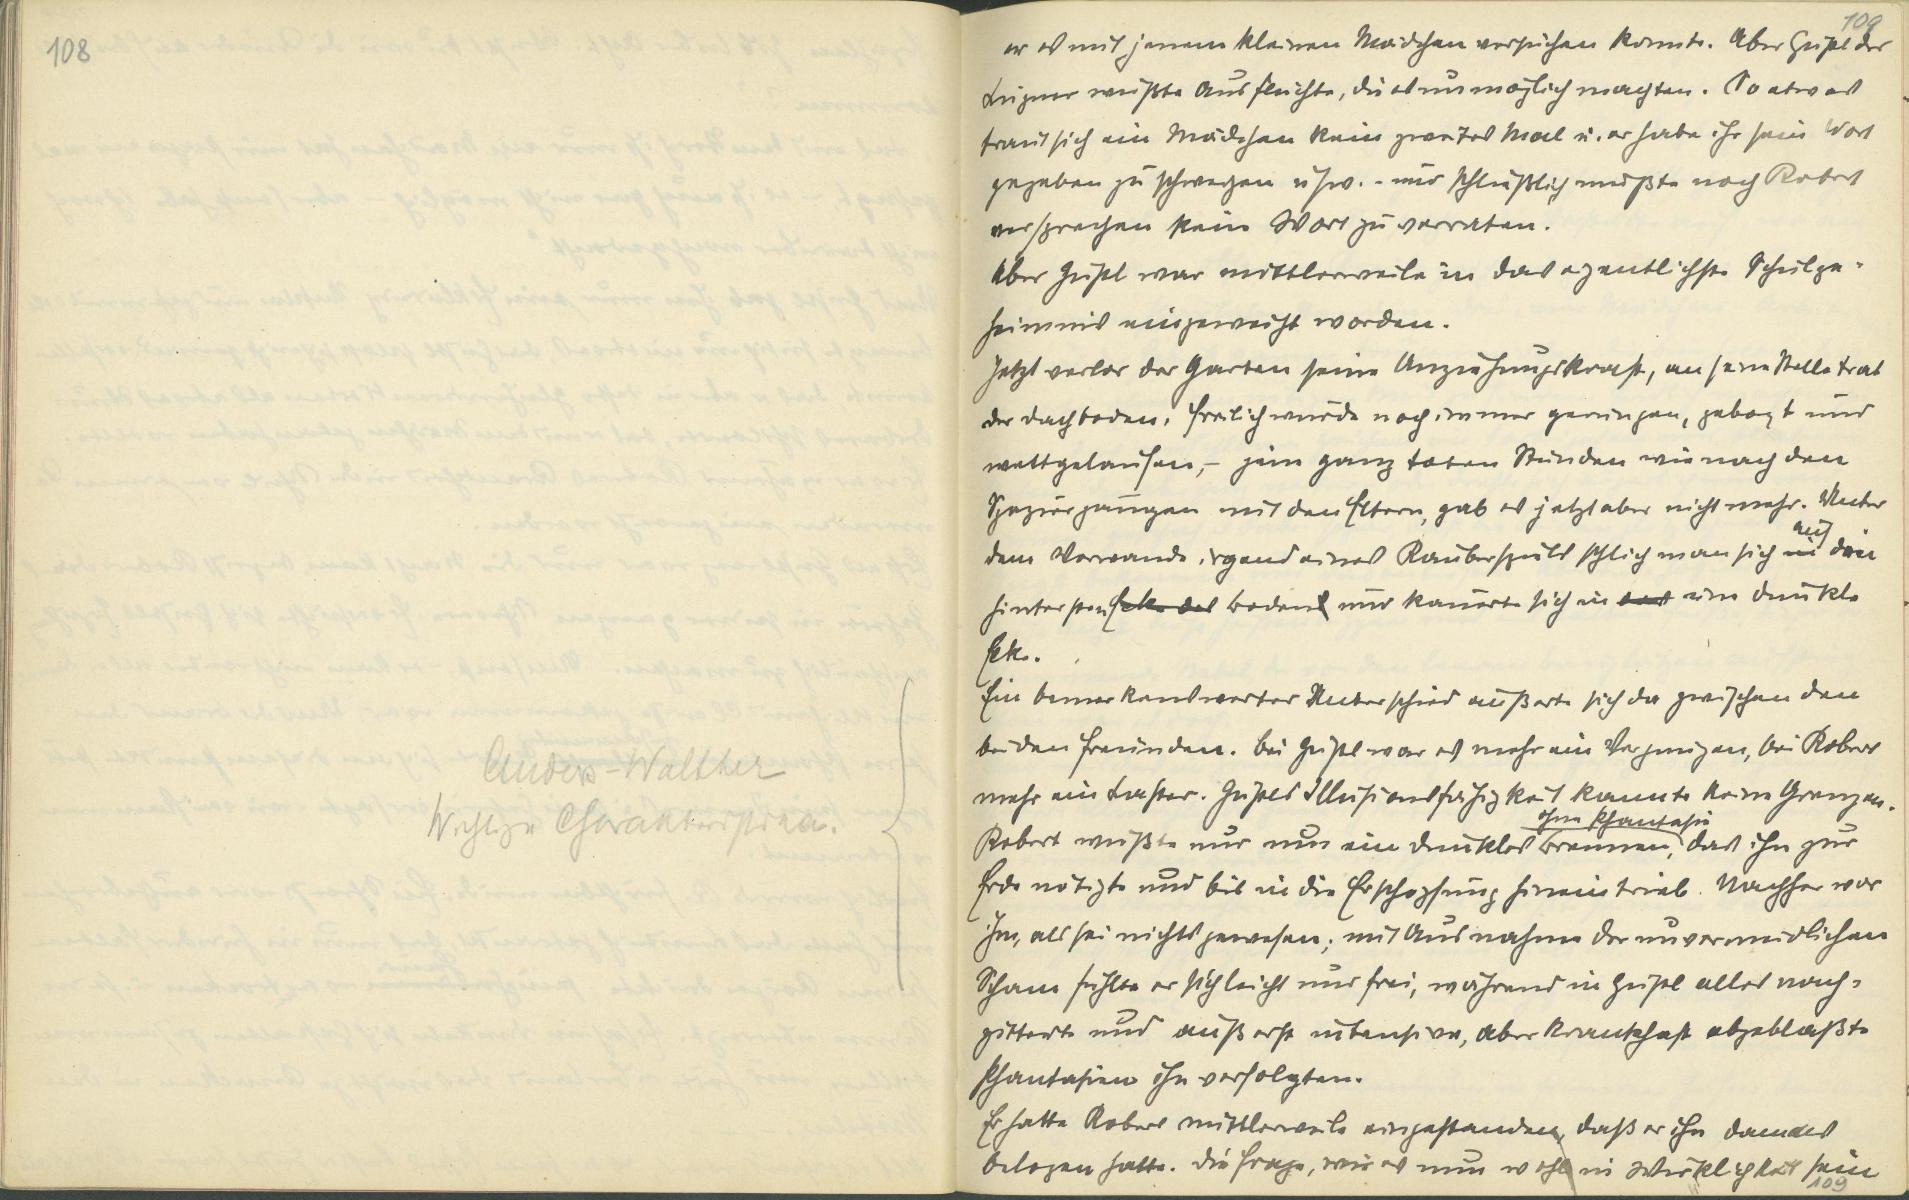 108
Anders-Walther
Wichtige Charakteristika.
109
er es mit jenem kleinen Mädchen versuchen konnte. Aber Gustl der
Lügner wußte Ausflüchte, die es unmöglich machten. So etwas
traut sich ein Mädchen kein zweites Mal u. er habe ihr sein Wort
gegeben zu schweigen usw. - und schließlich mußte noch Robert
versprechen kein Wort zu verraten.
Aber Gustl war mittlerweile in das eigentlichste Schulge-
heimnis eingeweiht worden.
Jetzt verlor der Garten seine Anziehungskraft, an seine Stelle trat
der Dachboden. Freilich wurde noch immer gerungen, geboxt und
wettgelaufen, – jene ganz toten Stunden wie nach den
Spaziergängen mit den Eltern, gab es jetzt aber nicht mehr. Unter
dem Vorwande irgend eines Räuberspiels schlich man sich auf den
hintersten Ecke des Bodens und kauerte sich in eine dunkle
Ecke.
Ein bemerkenswerter Unterschied äußerte sich da zwischen den
beiden Freunden. Bei Gustl war es mehr ein Vergnügen, bei Robert
mehr ein Laster. Gustls Illusionsfähigkeit kannte keine Grenzen.
ohne Phantasie
Robert wußte nur um ein dunkles Brennen, das ihn zur
Erde nötigte und bis in die Erschöpfung hineintrieb. Nachher war
ihm, als sei nichts gewesen; mit Ausnahme der unvermeidlichen
Scham fühlte er sich leicht und frei, während in Gustl alles nach-
zitterte und äußerst intensive, aber krankhaft abgeblaßte
Phantasien ihn verfolgten.
Er hatte Robert mittlerweile eingestanden, daß er ihn damals
belogen hatte. Die Frage, wie es nun wohl in Wirklichkeit sein
109